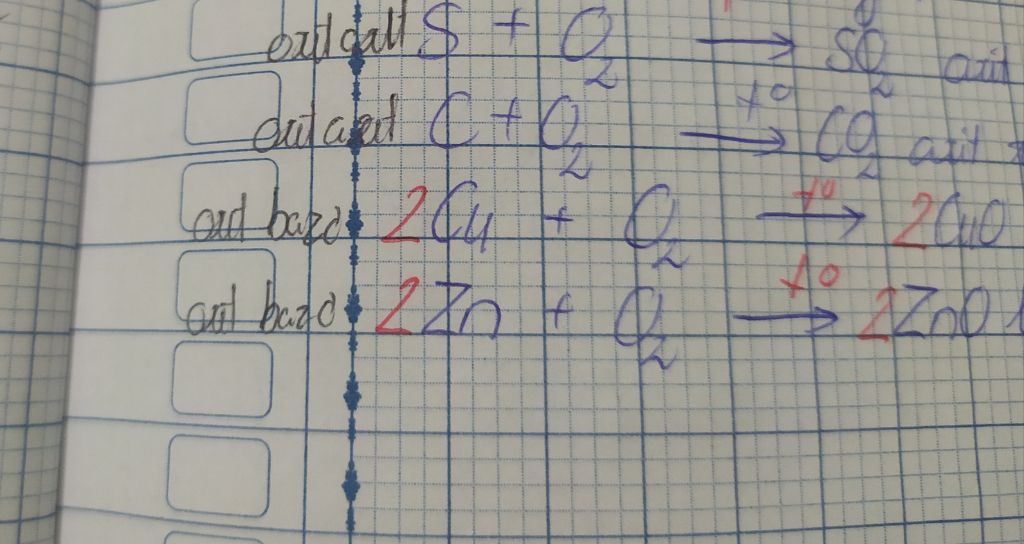 S + O2 → SO2 axit
oxit axit C + O2 t° → CO2 axit
oxit bazơ 2Cu + O2 t° → 2CuO
oxit bazơ 2Zn + O2 t° → 2ZnO